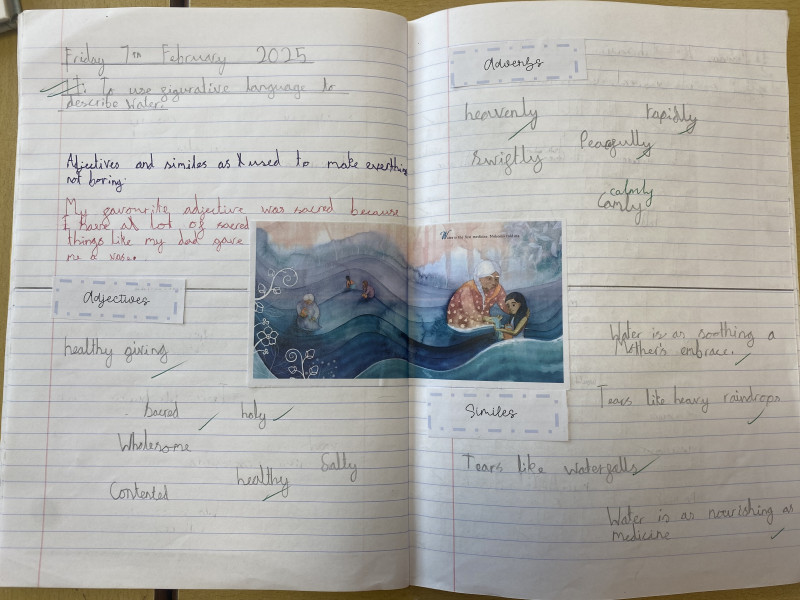 Friday 7th February 2025
LI: To use figurative language to
describe water.
Adjectives and similes as X used to make everything
not boring.
My favourite adjective was sacred because
I have at lot of sacred
things like my dad gave
me a vase.
Adjectives
healthy giving
Sacred holy
Wholesome
Salty
healthy
Contented
Adverbs
heavenly rapidly
Peacefully
swiftly
calmly
Camly
Water is the first medicine, Nokomis told me
Water is as soothing a
Mother's embrace.
Similes
Tears like heavy raindrops
Tears like waterfalls
Water is as nourishing as
medicine